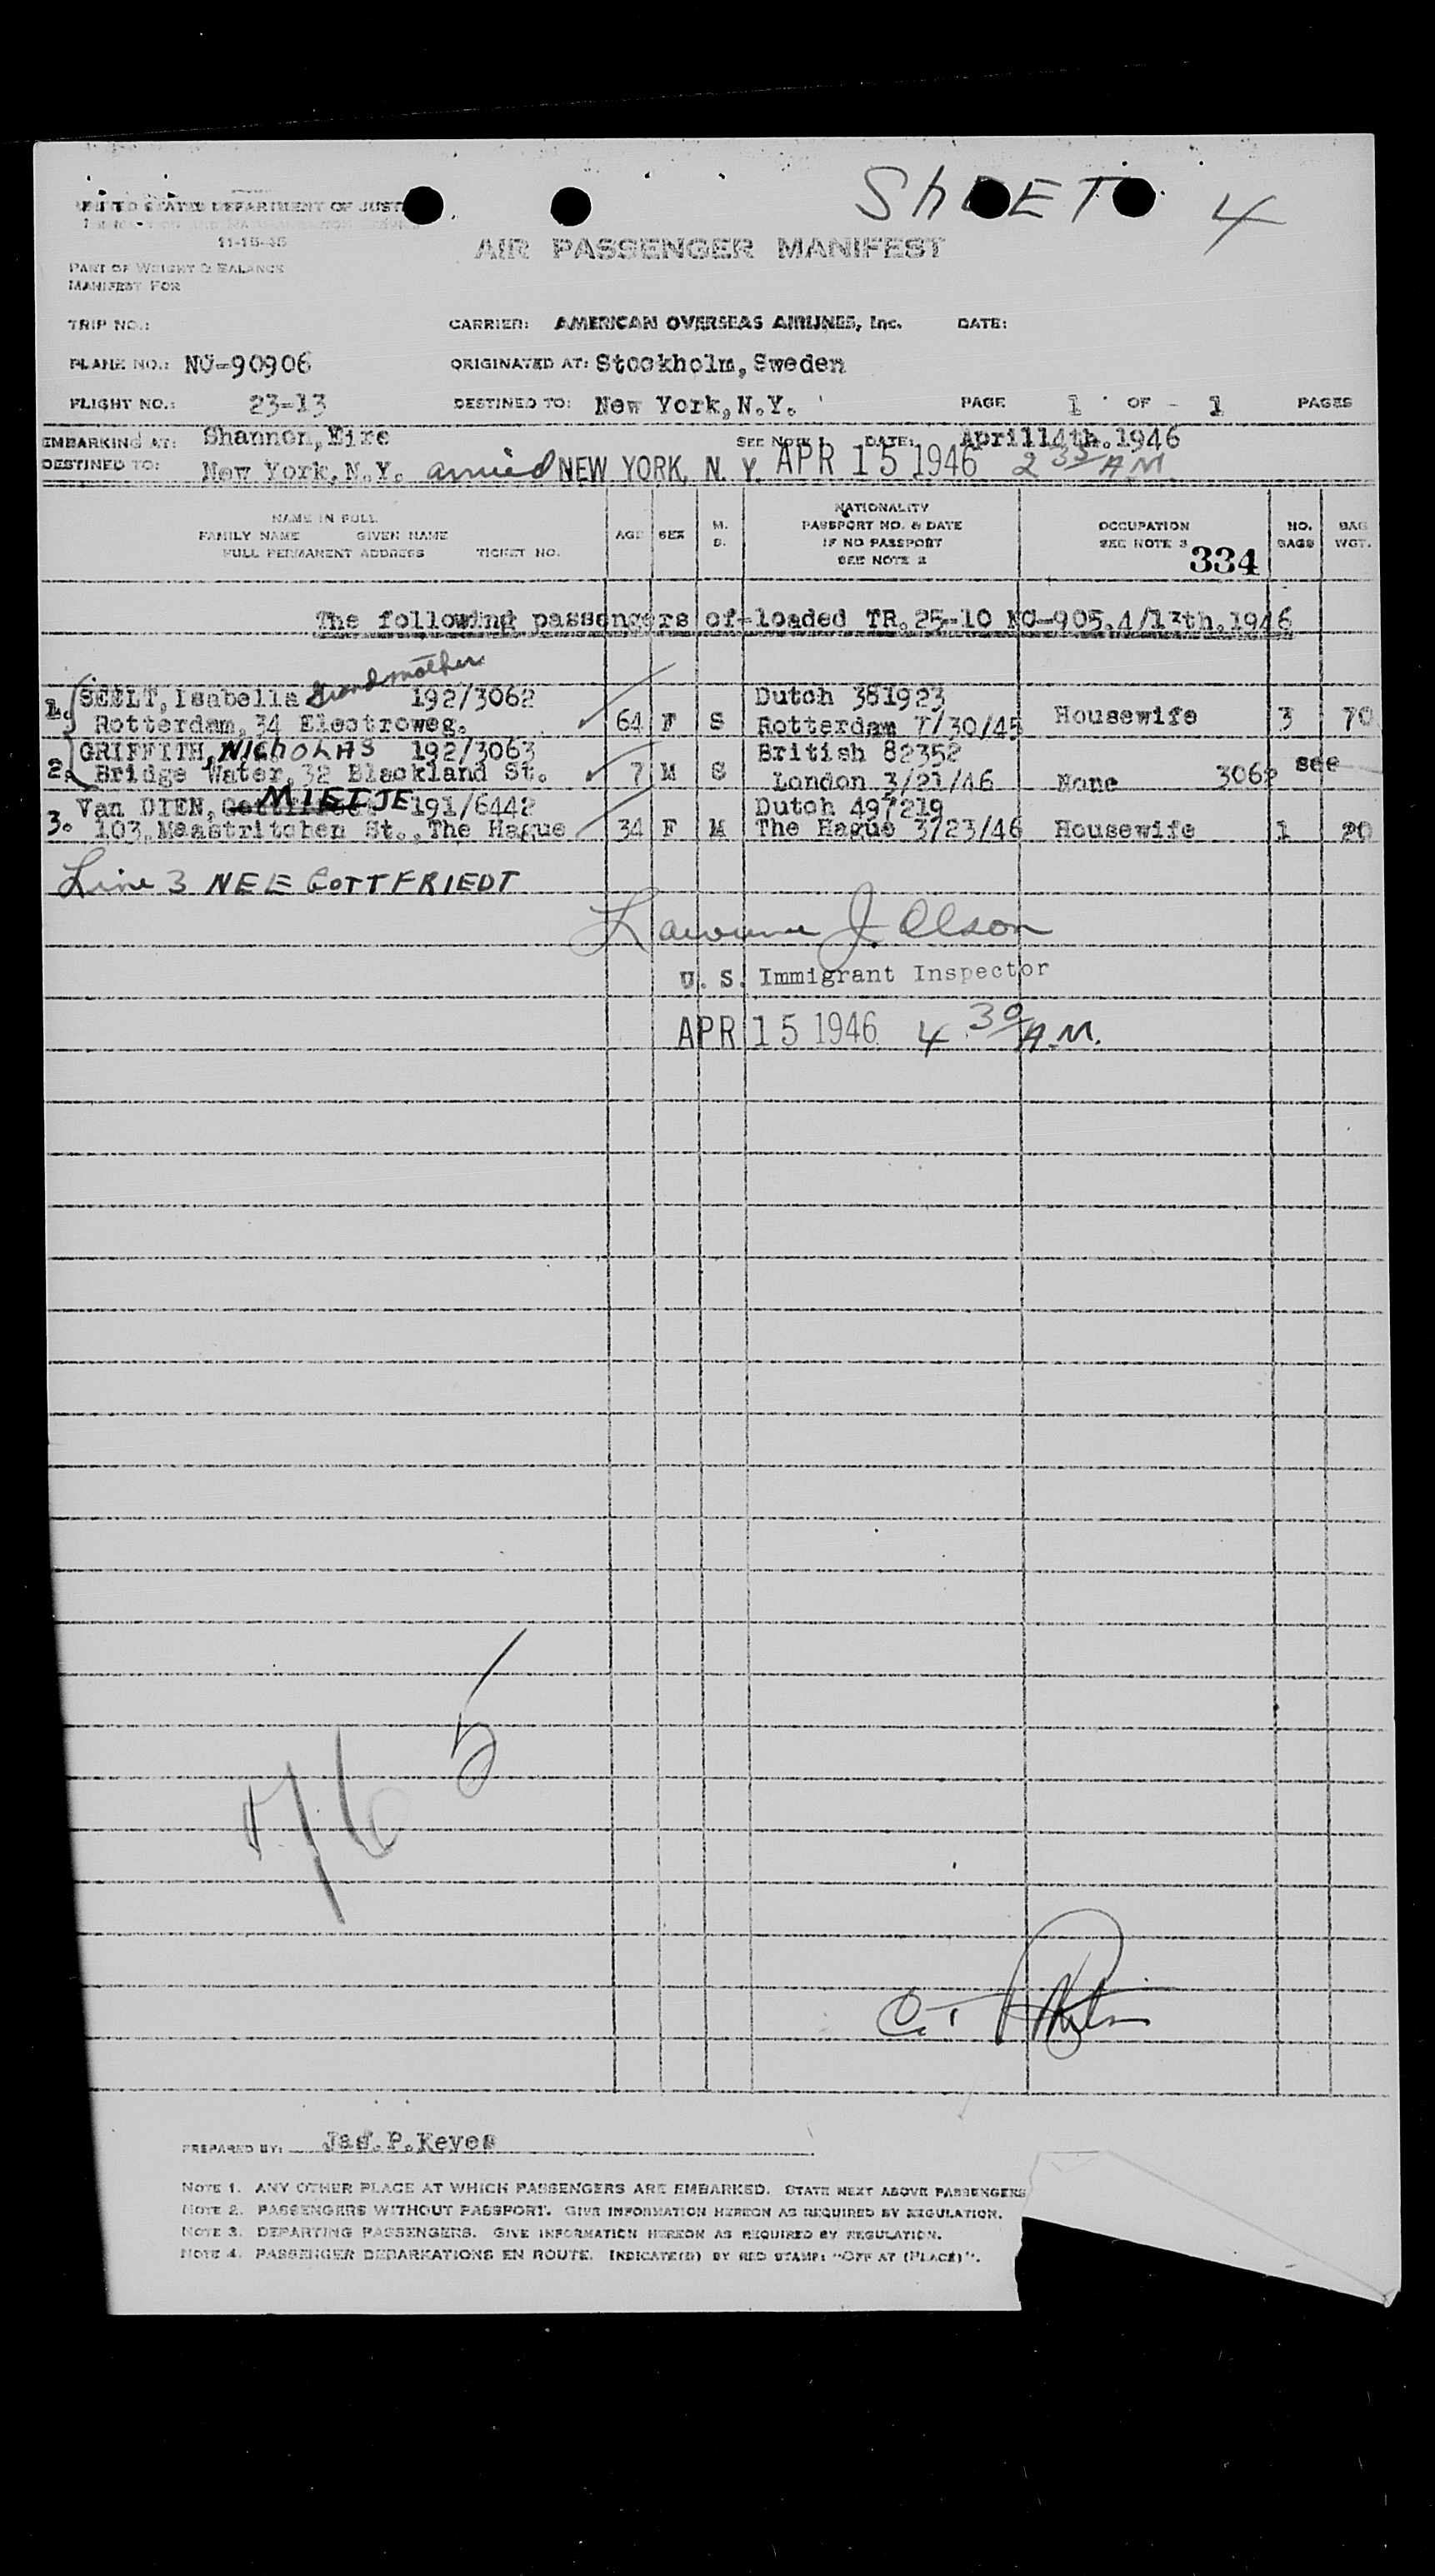 ShEET 4
UNITED STATES DEPARTMENT OF JUST
11-15-45
AIR PASSENGER MANIFEST
PART OF WEIGHT & BALANCE
MANIFEST FOR
TRIP NO.: CARRIER: AMERICAN OVERSEAS AIRLINES, Inc. DATE:
PLANE NO.: NC-90906 ORIGINATED AT: Stockholm, Sweden
FLIGHT NO.: 23-13 DESTINED TO: New York, N.Y. PAGE 1 OF - 1 PAGES
EMBARKING AT: Shannon, Eire SEE NOTE 1 DATE: April14th.1946
DESTINED TO: New York, N.Y. arrived NEW YORK, N. Y. APR 15 1946 2 35 A.M
NAME IN FULL
FAMILY NAME GIVEN NAME
FULL PERMANENT ADDRESS TICKET NO.
AGE SEX M. S.
NATIONALITY
PASSPORT NO. & DATE
IF NO PASSPORT
SEE NOTE 2
OCCUPATION
SEE NOTE 3 334
NO. BAGS
BAG WGT.
The following passengers of-loaded TR.25-10 NC-905.4/13th.1946
1. SEELT, Isabella Grandmother 192/3062 Dutch 381923
Rotterdam, 34 Electroweg. 64 F S Rotterdam 7/30/45 Housewife 3 70
GRIFFITH, NIChOLAS 192/3063 British 82352
2. Bridge Water, 32 Blackland St. 7 M S London 3/21/46 None 3062 see
Van DIEN, MIETJE 191/6442 Dutch 497219
3. 103, Maastritchen St., The Hague 34 F M The Hague 3/23/46 Housewife 1 20
Line 3 NEE GOTTFRIEDT
Lawrence J. Olson
U. S. Immigrant Inspector
APR 15 1946 4 30 A.M.
5
PREPARED BY: Jas. P. Keyes
NOTE 1. ANY OTHER PLACE AT WHICH PASSENGERS ARE EMBARKED. STATE NEXT ABOVE PASSENGERS
NOTE 2. PASSENGERS WITHOUT PASSPORT. GIVE INFORMATION HEREON AS REQUIRED BY REGULATION.
NOTE 3. DEPARTING PASSENGERS. GIVE INFORMATION HEREON AS REQUIRED BY REGULATION.
NOTE 4. PASSENGER DEBARKATIONS EN ROUTE. INDICATE(D) BY RED STAMP: "OFF AT (PLACE)".